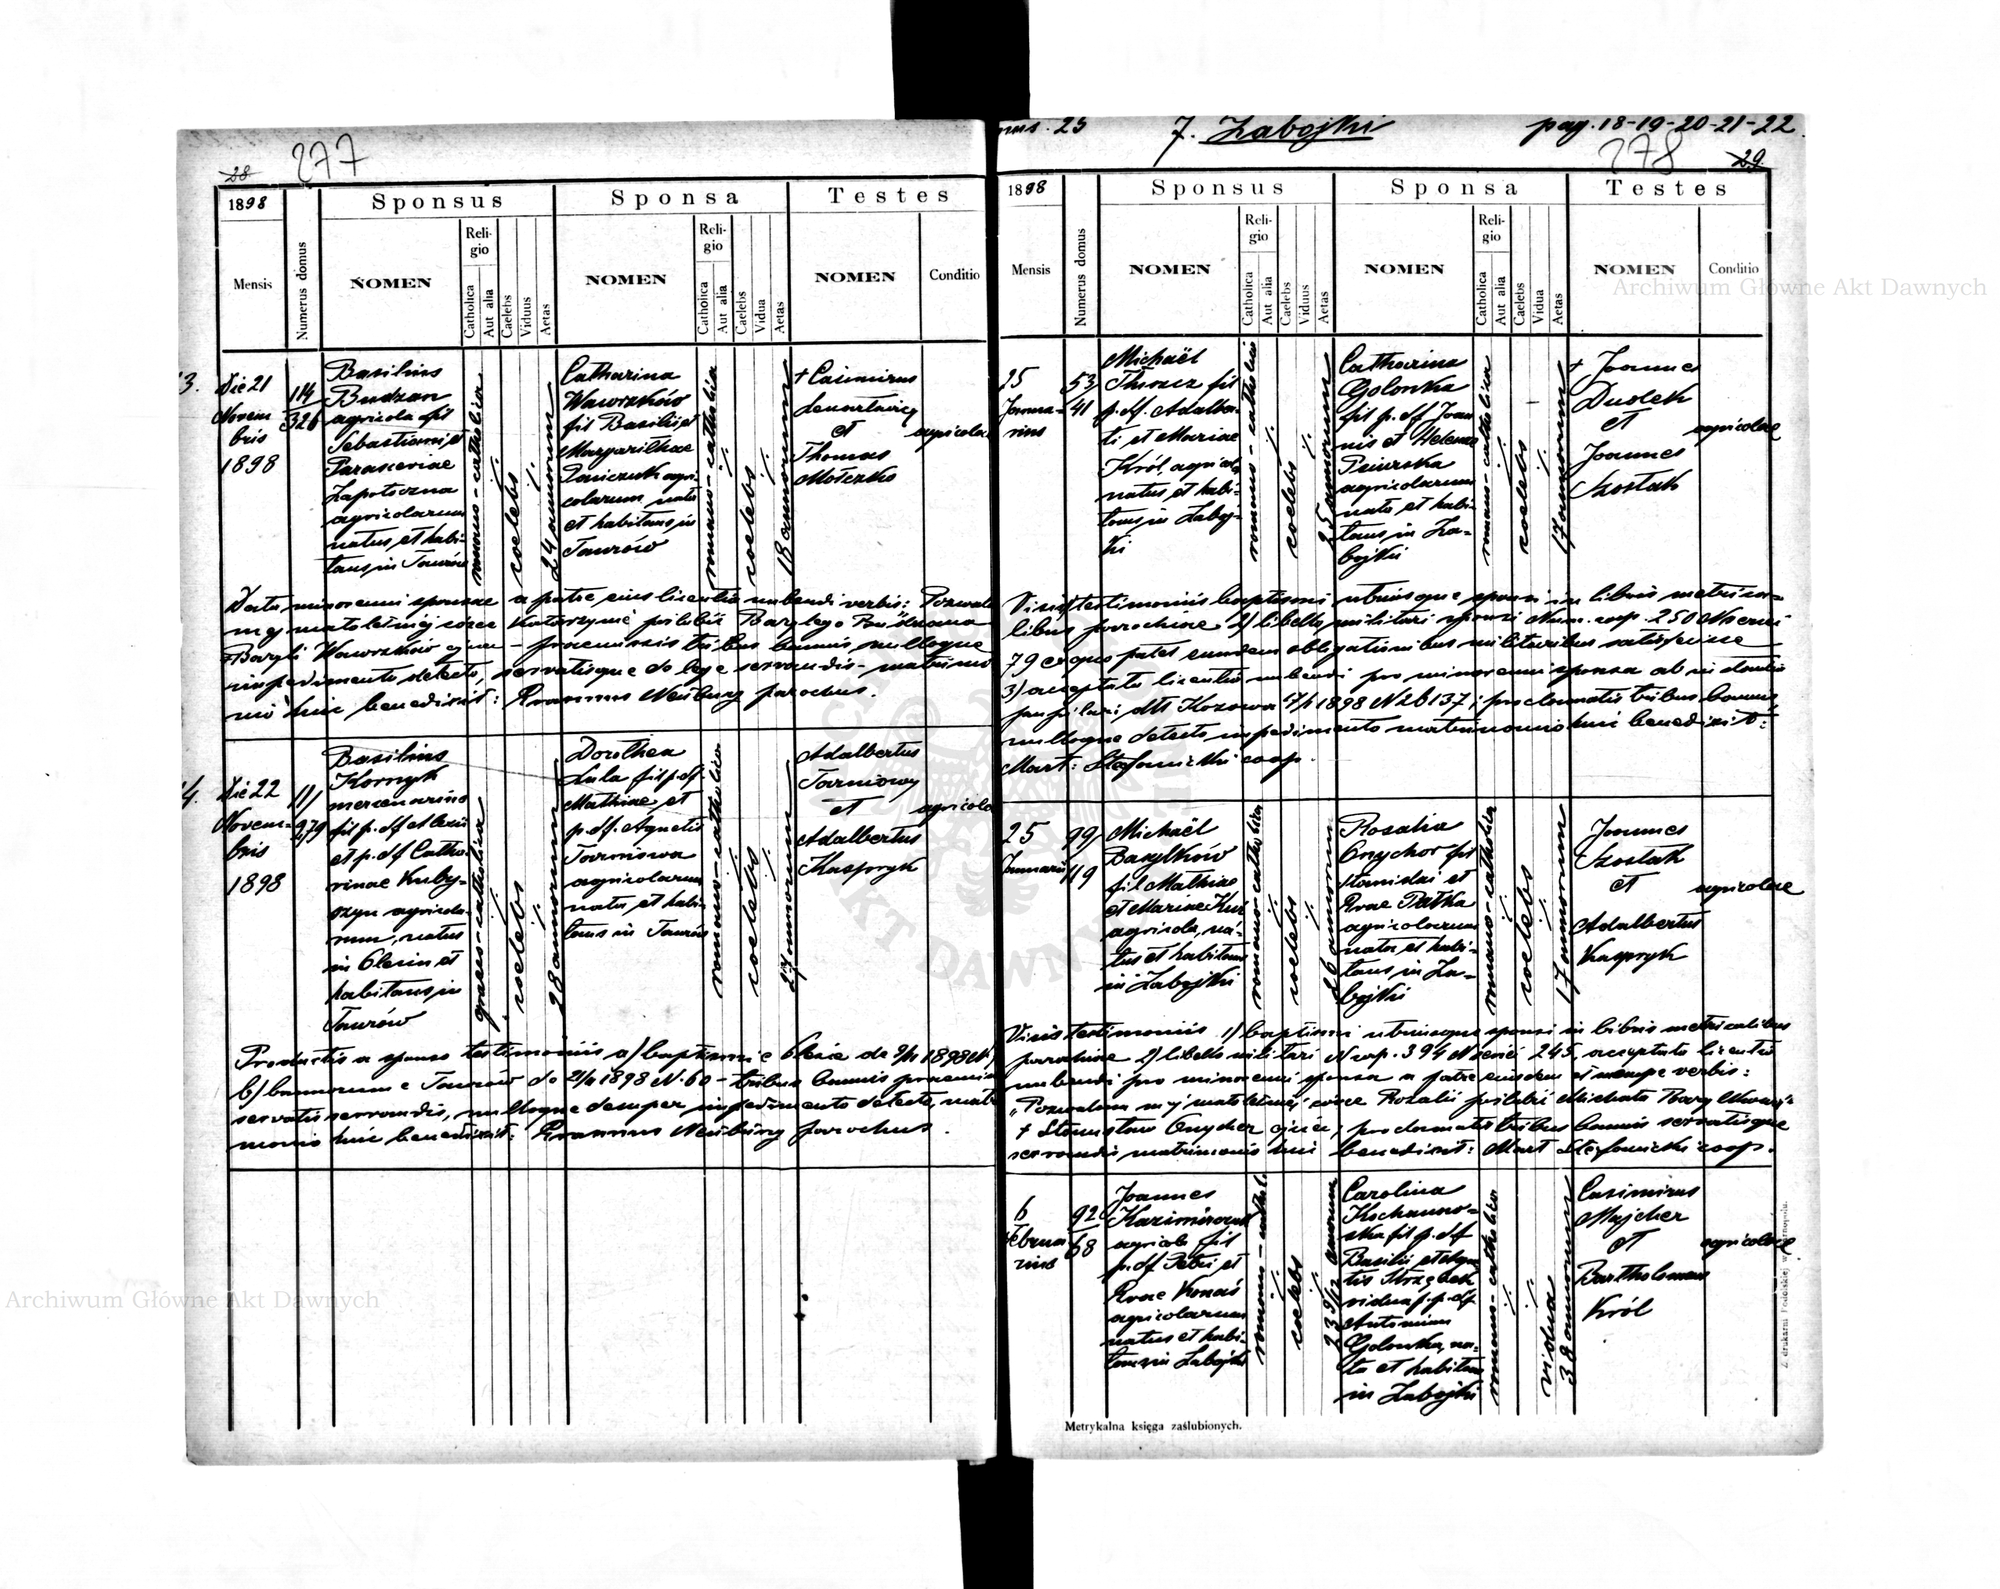 28
277
1898
Sponsus
Sponsa
Testes
Mensis
Numerus domus
NOMEN
Religio
Catholica
Aut alia
Caelebs
Viduus
Aetas
NOMEN
Religio
Catholica
Aut alia
Caelebs
Vidua
Aetas
NOMEN
Conditio
3.
Die 21
Novem
bris
1898
114
326
Basilius
Budzan
agricola fil
Sebastiani et
Parasceviae
Zapotoczna
agricolarum
natus et habi-
tans in Taurów
romano-catholica
coelebs
24 annorum
Catharina
Wawrzków
fil Basilii et
Margarithae
agri-
colarum nata
et habitans in
Taurów
romano-catholica
coelebs
18 annorum
+ Casimirus
et
Thomas
agricolae
Data minorenni sponsae a patre eius licentia nubendi verbis: Pozwalam
mej małoletniej córce Katarzynie poślubić Bazylego Budzana
+ Bazyli Wawrzków ojciec - praemissis tribus bannis nulloque
impedimento detecto, servatisque de lege servandis - matrimo
nio huic benedixit: Erasmus Neuburg parochus.
4.
Die 22
Novem-
bris
1898
111
279
Basilius
Kornyk
mercenarius
fil p. df Alexii
et p. df Catha-
rinae Kuby-
szyn agricola-
rum, natus
in Olesin et
habitans in
Taurów
graeco-catholica
coelebs
28 annorum
Dorothea
Lula fil p. df
Mathiae et
p. df. Agnetis
Tarnowa
agricolarum
nata et habi-
tans in Taurów
romano-catholica
coelebs
27 annorum
Adalbertus
Tarnowy
et
Adalbertus
Kaspryk
agricolae
Productis a sponso testimoniis a) baptismi e Olesin
b) bannorum e Taurów de 1898 N. 60 - tribus bannis praemissis
servatis servandis, nulloque demper impedimento detecto, matri
monio huic benedixit: Erasmus Neuburg parochus.
25
7. Zabojki
pag. 18-19-20-21-22
278
29
1898
Sponsus
Sponsa
Testes
Mensis
Numerus domus
NOMEN
Religio
Catholica
Aut alia
Caelebs
Viduus
Aetas
NOMEN
Religio
Catholica
Aut alia
Caelebs
Vidua
Aetas
NOMEN
Conditio
25
Janua-
rius
53
41
Michaël
fil
p. df. Adalber-
ti et Mariae
Król, agricola
natus et habi-
tans in Zaboj-
ki
romano-catholica
coelebs
25 annorum
Catharina
Golonka
fil p. df Joan
nis et Helenae
agricolarum
nata et habi-
tans in Za-
bojki
romano-catholica
coelebs
17 annorum
+ Joannes
Dudek
et
Joannes
Szostak
agricolae
Visis testimoniis baptismi utriusque sponsi in libris metrica-
libus parochiae 2) libello militari sponsi Num. cop. 250
79 ex quo patet eundem obligationibus militaribus satisfecisse
3) accepta licentia nubendi pro minorenni sponsa ab
Kozowa 1898 N 26137; proclamatis tribus bannis,
nulloque detecto impedimento matrimonio huic benedixit:
Mart: Stefanicki coop.
25
Januarii
99
119
Michaël
Bazylków
fil Mathiae
et Mariae Kur
agricola, na-
tus et habitans
in Zabojki
romano-catholica
coelebs
26 annorum
Rosalia
Onychor fil
Stanislai et
Evae Pałka
agricolarum
nata et habi-
tans in Za-
bojki
romano-catholica
coelebs
17 annorum
Joannes
Szostak
et
Adalbertus
Kaspryk
agricolae
Visis testimoniis 1) baptismi utriusque sponsi in libris metricalibus
parochiae 2) libello militari N cop. 394 245, accepta licentia
nubendi pro minorenni sponsa a patre eiusdem et nempe verbis:
„Pozwalam mej małoletniej córce Rozalii poślubić Michała Bazylkowa"
+ Stanisław Onycher ojciec; proclamatis tribus bannis servatisque
servandis, matrimonio huic benedixit: Mart Stefanicki coop.
6
Februa
rius
92
68
Joannes
agricola fil
p. df Petri et
Evae
agricolarum
natus et habi-
tans in Zabojki
romano-cathol.
coelebs
23 9/12 annorum
Carolina
Kochanno-
ska fil p. df
Basilii et
vidua p. p. df
Antonium
Golonka, na-
ta et habitans
in Zabojki
romano-catholica
vidua
38 annorum
Casimirus
Majcher
et
Bartholomaeus
Król
agricolae
Metrykalna księga zaślubionych.
Z drukarni Podolskiej w Tarnopolu.
Archiwum Główne Akt Dawnych
Archiwum Główne Akt Dawnych